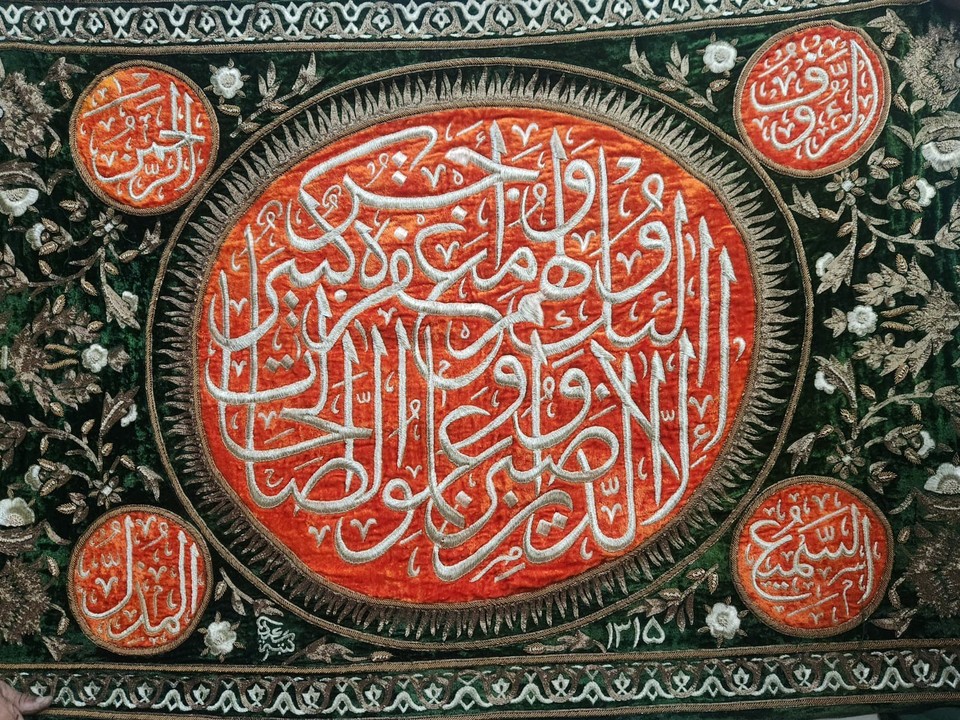 الرؤف
الرحمن
إلا الذين صبروا وعملوا الصالحات
أولئك لهم مغفرة وأجر كبير
السميع
المذل
١٣١٥